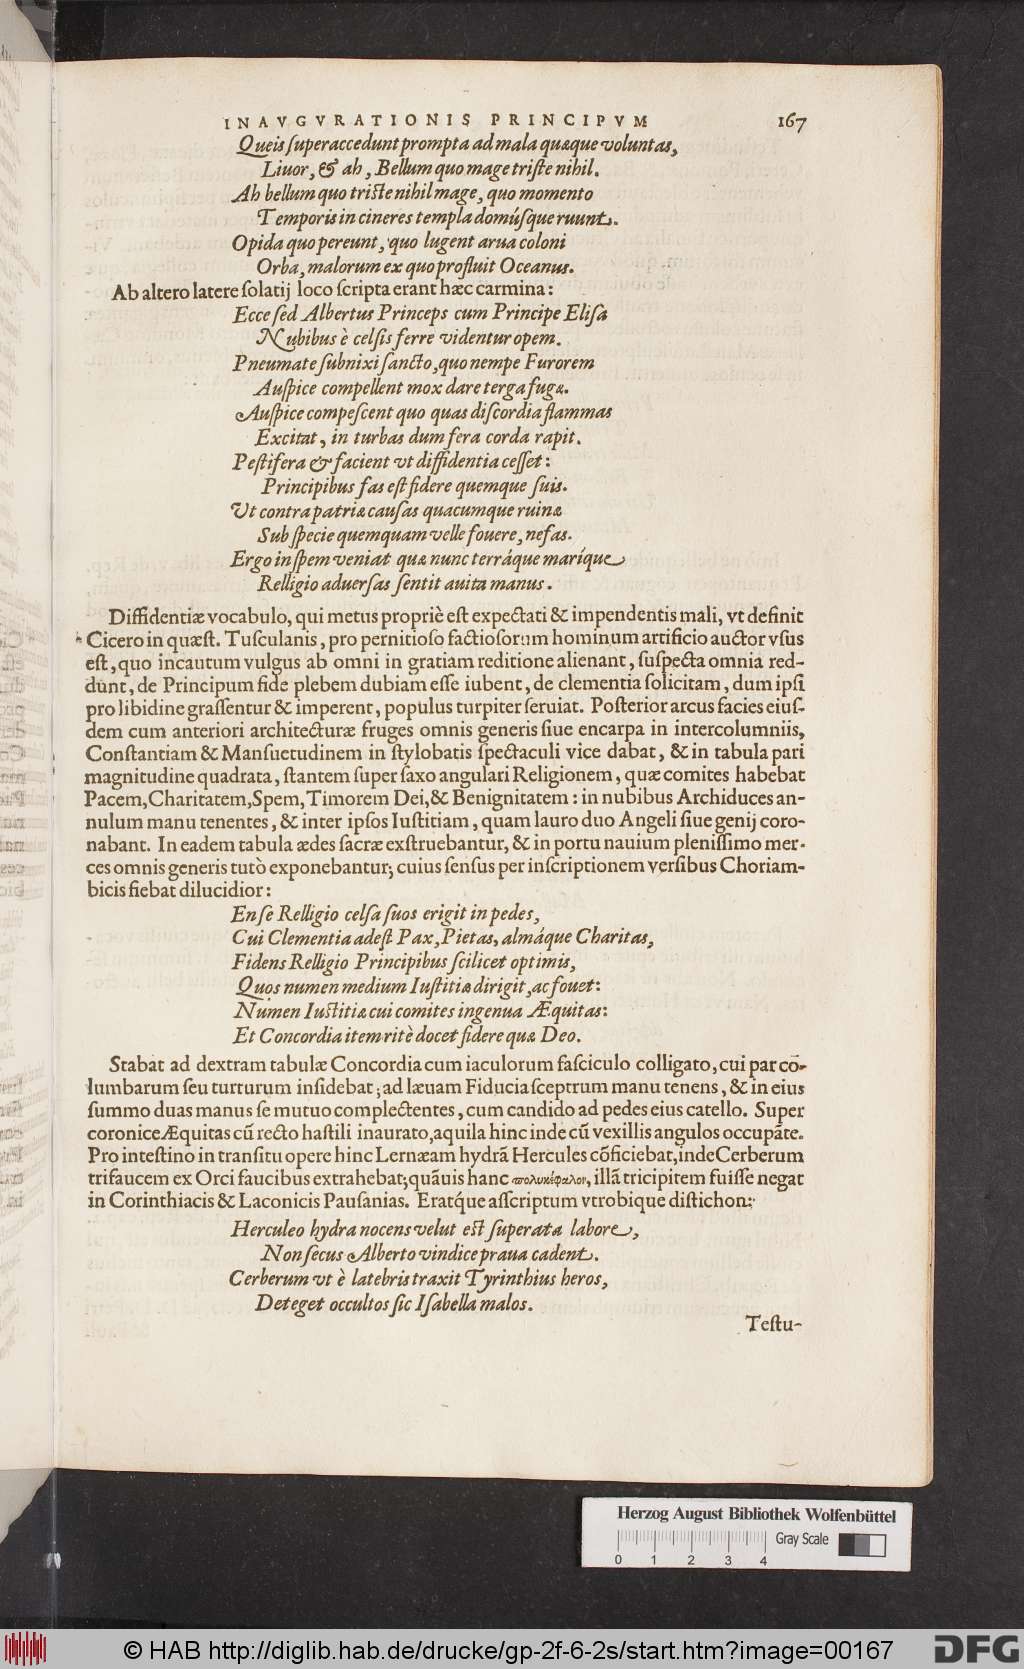 INAVGVRATIONIS PRINCIPVM 167
Queis superaccedunt prompta ad mala quæque voluntas,
Liuor, & ah, Bellum quo mage triste nihil.
Ah bellum quo triste nihil mage, quo momento
Temporis in cineres templa domúsque ruunt.
Opida quo pereunt, quo lugent arua coloni
Orba, malorum ex quo profluit Oceanus.
Ab altero latere solatij loco scripta erant hæc carmina:
Ecce sed Albertus Princeps cum Principe Elisa
Nubibus è celsis ferre videntur opem.
Pneumate subnixi sancto, quo nempe Furorem
Auspice compellent mox dare terga fugæ.
Auspice compescent quo quas discordia flammas
Excitat, in turbas dum fera corda rapit.
Pestifera & facient vt diffidentia cesset:
Principibus fas est fidere quemque suis.
Vt contra patriæ causas quacumque ruinæ
Sub specie quemquam velle fouere, nefas.
Ergo in spem veniat quæ nunc terráque maríque
Relligio aduersas sentit auita manus.
Diffidentiæ vocabulo, qui metus propriè est expectati & impendentis mali, vt definit
Cicero in quæst. Tusculanis, pro pernitioso factiosorum hominum artificio auctor vsus
est, quo incautum vulgus ab omni in gratiam reditione alienant, suspecta omnia red-
dunt, de Principum fide plebem dubiam esse iubent, de clementia solicitam, dum ipsi
pro libidine grassentur & imperent, populus turpiter seruiat. Posterior arcus facies eius-
dem cum anteriori architecturæ fruges omnis generis siue encarpa in intercolumniis,
Constantiam & Mansuetudinem in stylobatis spectaculi vice dabat, & in tabula pari
magnitudine quadrata, stantem super saxo angulari Religionem, quæ comites habebat
Pacem, Charitatem, Spem, Timorem Dei, & Benignitatem: in nubibus Archiduces an-
nulum manu tenentes, & inter ipsos Iustitiam, quam lauro duo Angeli siue genij coro-
nabant. In eadem tabula ædes sacræ exstruebantur, & in portu nauium plenissimo mer-
ces omnis generis tutò exponebantur; cuius sensus per inscriptionem versibus Choriam-
bicis fiebat dilucidior:
Ense Relligio celsa suos erigit in pedes,
Cui Clementia adest Pax, Pietas, almáque Charitas,
Fidens Relligio Principibus scilicet optimis,
Quos numen medium Iustitiæ dirigit, ac fouet:
Numen Iustitiæ cui comites ingenua Æquitas:
Et Concordia item ritè docet fidere quæ Deo.
Stabat ad dextram tabulæ Concordia cum iaculorum fasciculo colligato, cui par cō-
lumbarum seu turturum insidebat; ad læuam Fiducia sceptrum manu tenens, & in eius
summo duas manus se mutuo complectentes, cum candido ad pedes eius catello. Super
coronice Æquitas cū recto hastili inaurato, aquila hinc inde cū vexillis angulos occupāte.
Pro intestino in transitu opere hinc Lernæam hydrā Hercules cōficiebat, inde Cerberum
trifaucem ex Orci faucibus extrahebat; quāuis hanc πολυκέφαλον, illā tricipitem fuisse negat
in Corinthiacis & Laconicis Pausanias. Eratq́ue asscriptum vtrobique distichon:
Herculeo hydra nocens velut est superata labore,
Non secus Alberto vindice praua cadent.
Cerberum vt è latebris traxit Tyrinthius heros,
Deteget occultos sic Isabella malos.
Testu-
Herzog August Bibliothek Wolfenbüttel
Gray Scale
0 1 2 3 4
© HAB http://diglib.hab.de/drucke/gp-2f-6-2s/start.htm?image=00167
DFG